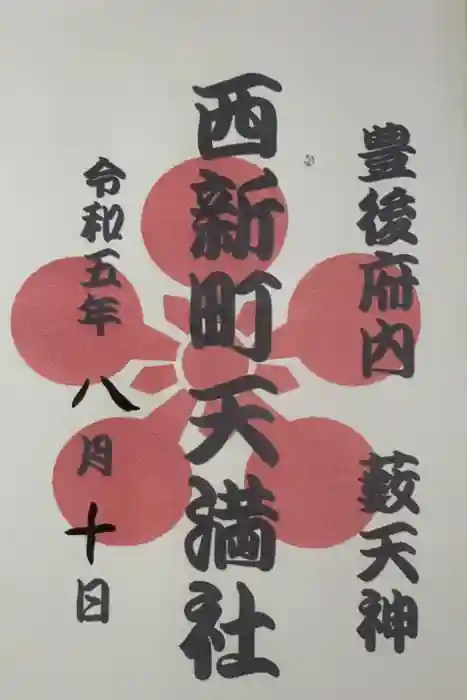 豊後府内 藪天神
西新町天満社
令和五年八月十日